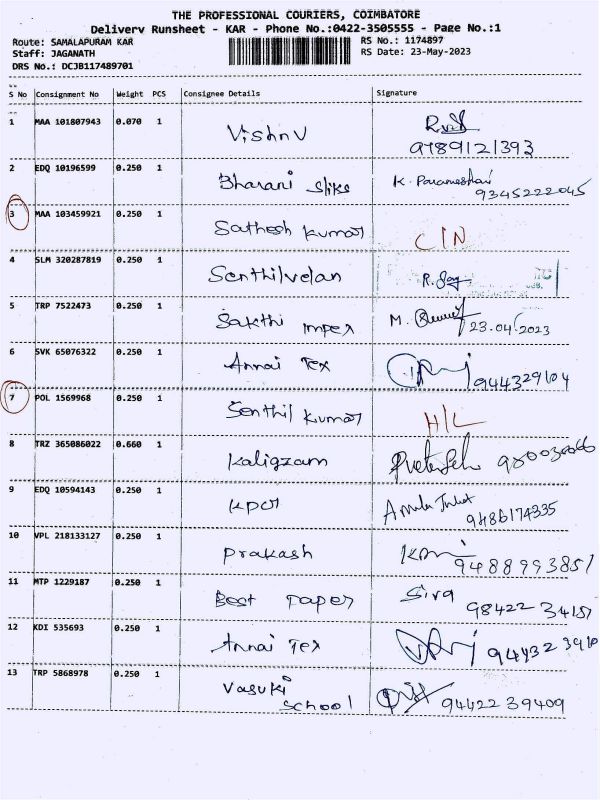 THE PROFESSIONAL COURIERS, COIMBATORE
Delivery Runsheet - KAR - Phone No.:0422-3505555 - Page No.:1
Route: SAMALAPURAM KAR RS No.: 1174897
Staff: JAGANATH RS Date: 23-May-2023
DRS No.: DCJB117489701
S No Consignment No Weight PCS Consignee Details Signature
1 MAA 101807943 0.070 1 Vishnu
9789121393
2 EDQ 10196599 0.250 1 Bharani silks K. Parameshari
9345222045
3 MAA 103459921 0.250 1 Sathesh kumar C/N
4 SLM 320287819 0.250 1 Senthilvelan
5 TRP 7522473 0.250 1 Sakthi impex M. 23.04/2023
6 SVK 65076322 0.250 1 Annai Tex 944329104
7 POL 1569968 0.250 1 Senthil kumar H/L
8 TRZ 365086022 0.660 1 Kaligzam
9 EDQ 10594143 0.250 1 KPCT
9486174335
10 VPL 218133127 0.250 1 Prakash 9488993851
11 MTP 1229187 0.250 1 Best Paper Siva
98422 34157
12 KDI 535693 0.250 1 Annai Tex 944323910
13 TRP 5868978 0.250 1 Vasuki
School 94422 39409